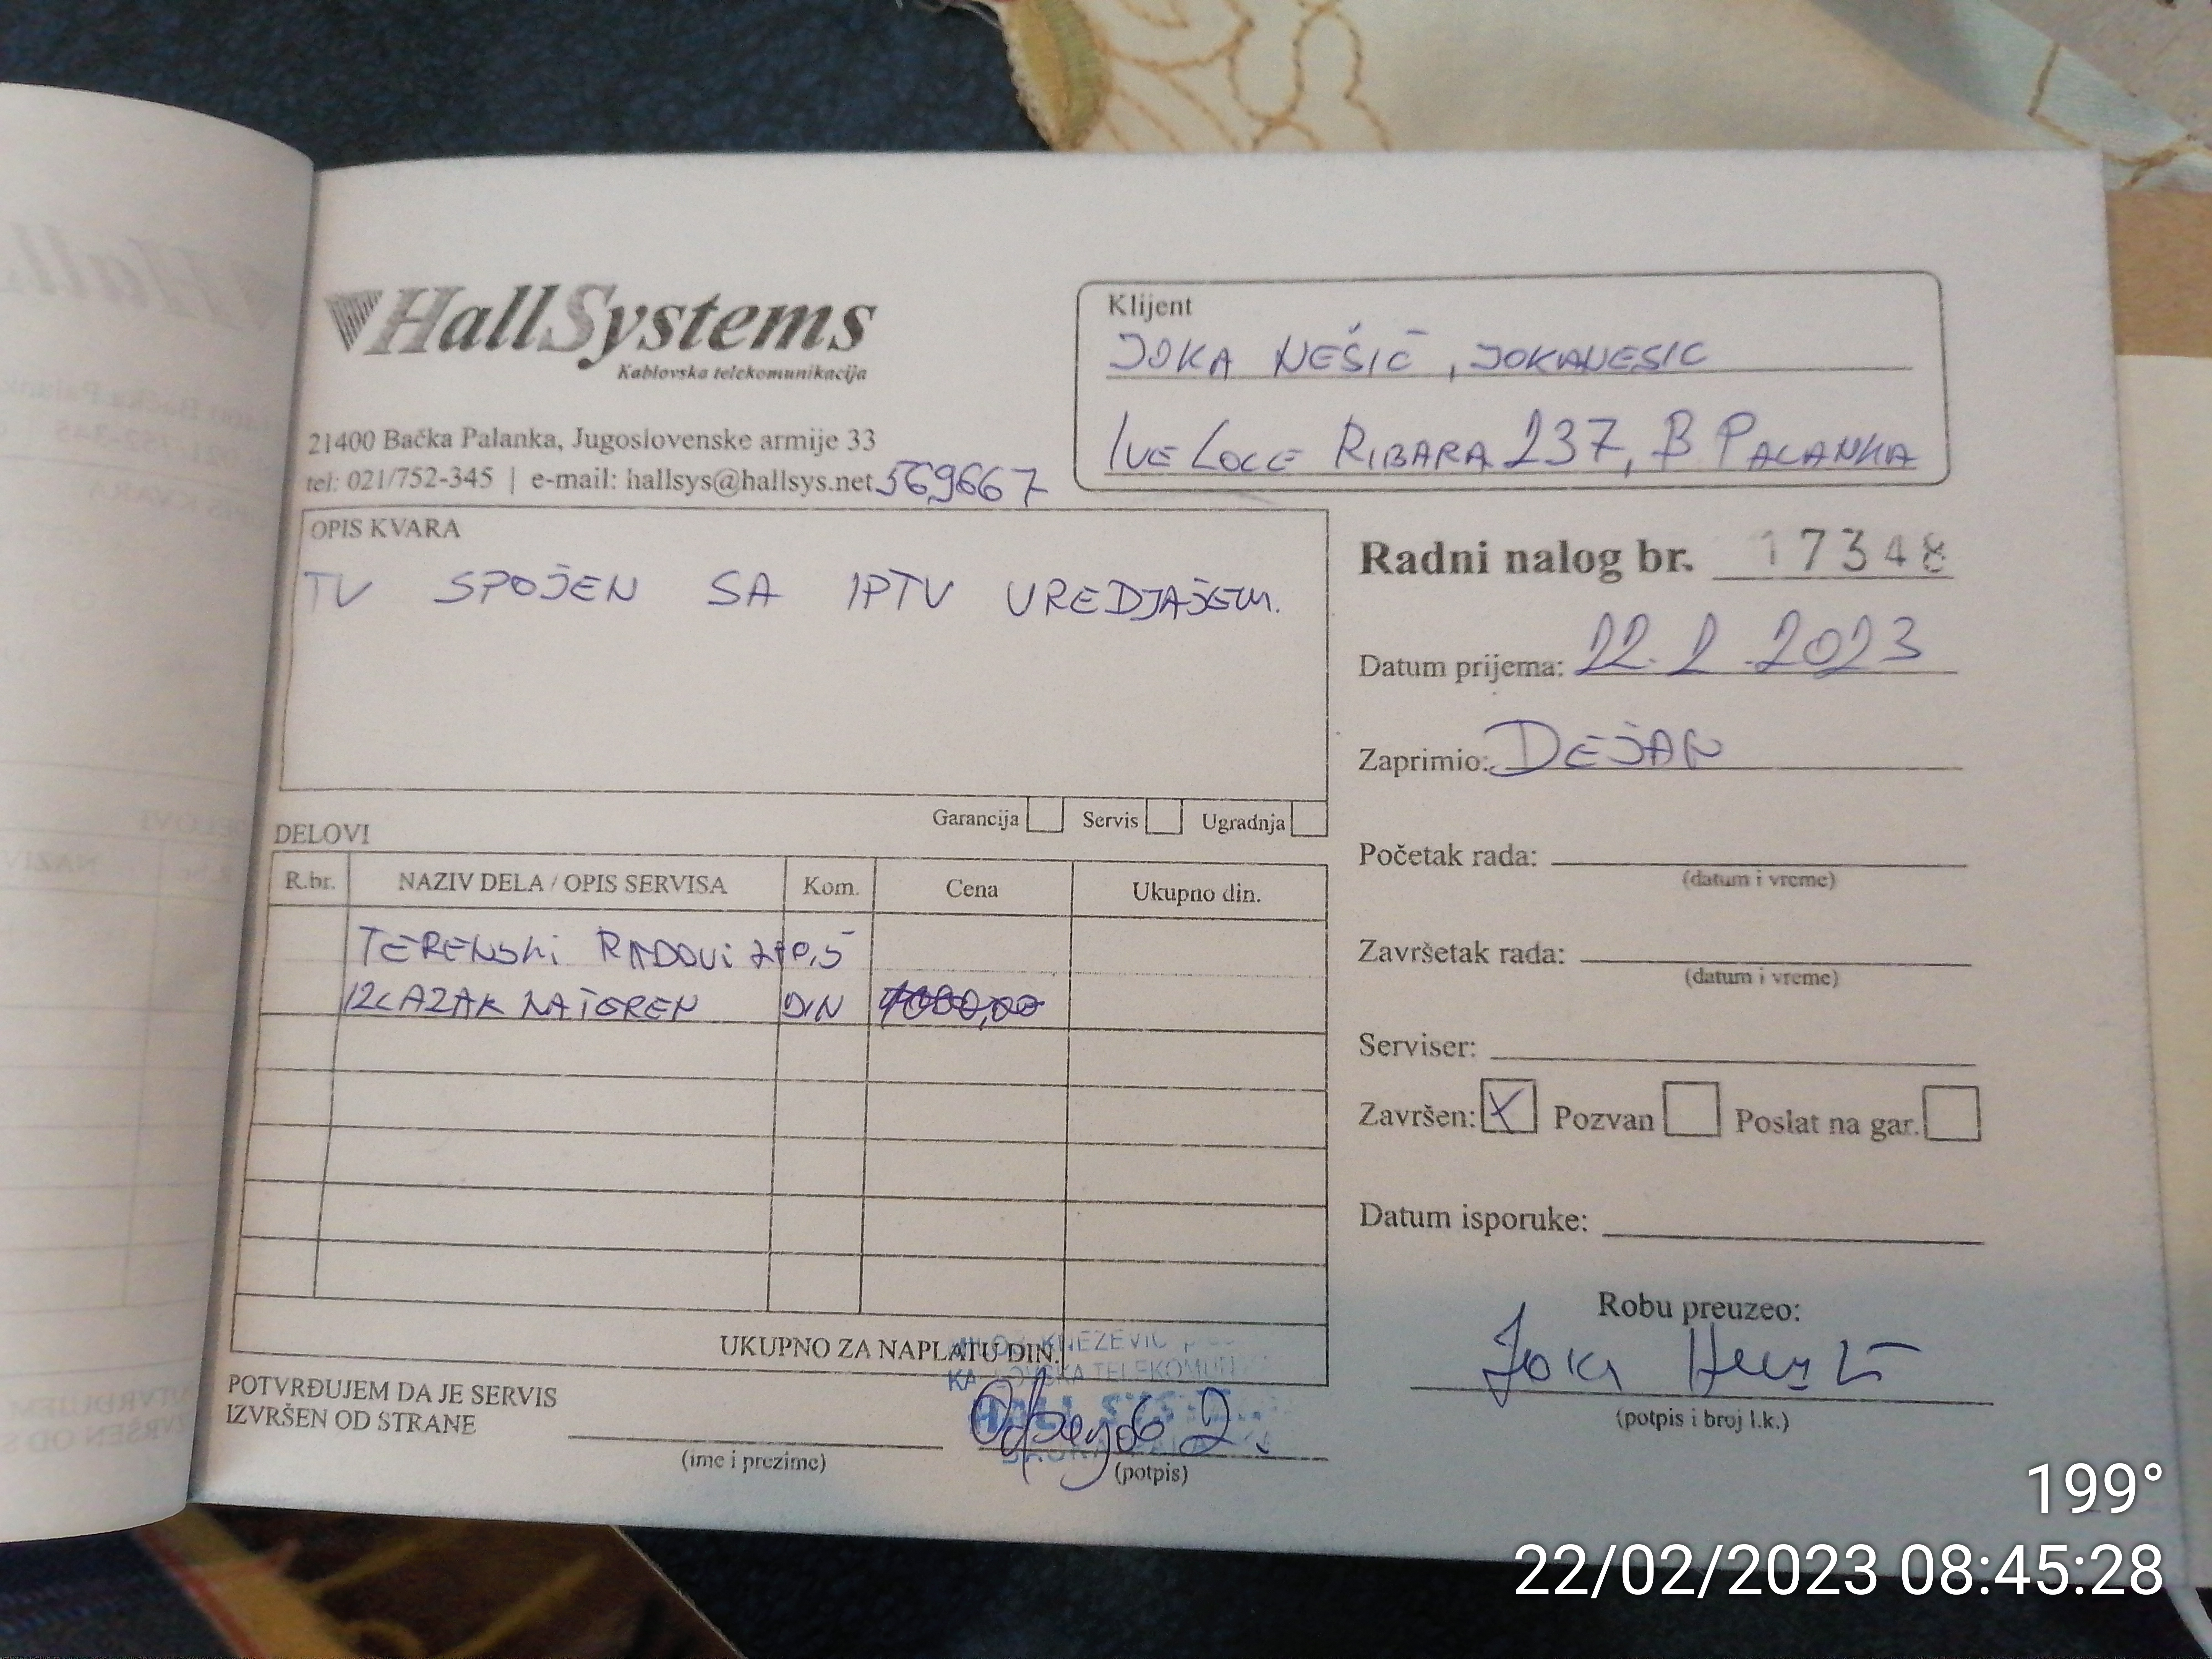 HallSystems
Kablovska telekomunikacija
21400 Bačka Palanka, Jugoslovenske armije 33
tel: 021/752-345 | e-mail: hallsys@hallsys.net 569667
Klijent
JOKA NEŠIĆ, JOKANESIC
IVE LOLE RIBARA 237, B PALANKA
OPIS KVARA
TV SPOJEN SA IPTV UREDJAJEM.
Garancija Servis Ugradnja
Radni nalog br. 17348
Datum prijema: 22.2.2023
Zaprimio: DEJAN
Početak rada:
(datum i vreme)
Završetak rada:
(datum i vreme)
Serviser:
Završen: X Pozvan Poslat na gar.
Datum isporuke:
Robu preuzeo:
(potpis i broj l.k.)
DELOVI
R.br. NAZIV DELA / OPIS SERVISA Kom. Cena Ukupno din.
TERENSKI RADOVI
IZLAZAK NA TEREN DIN 1000,00
UKUPNO ZA NAPLATU DIN.
KNEZEVIC
TELEKOMUN
HALL SYST
POTVRĐUJEM DA JE SERVIS
IZVRŠEN OD STRANE
(ime i prezime)
(potpis)
199°
22/02/2023 08:45:28